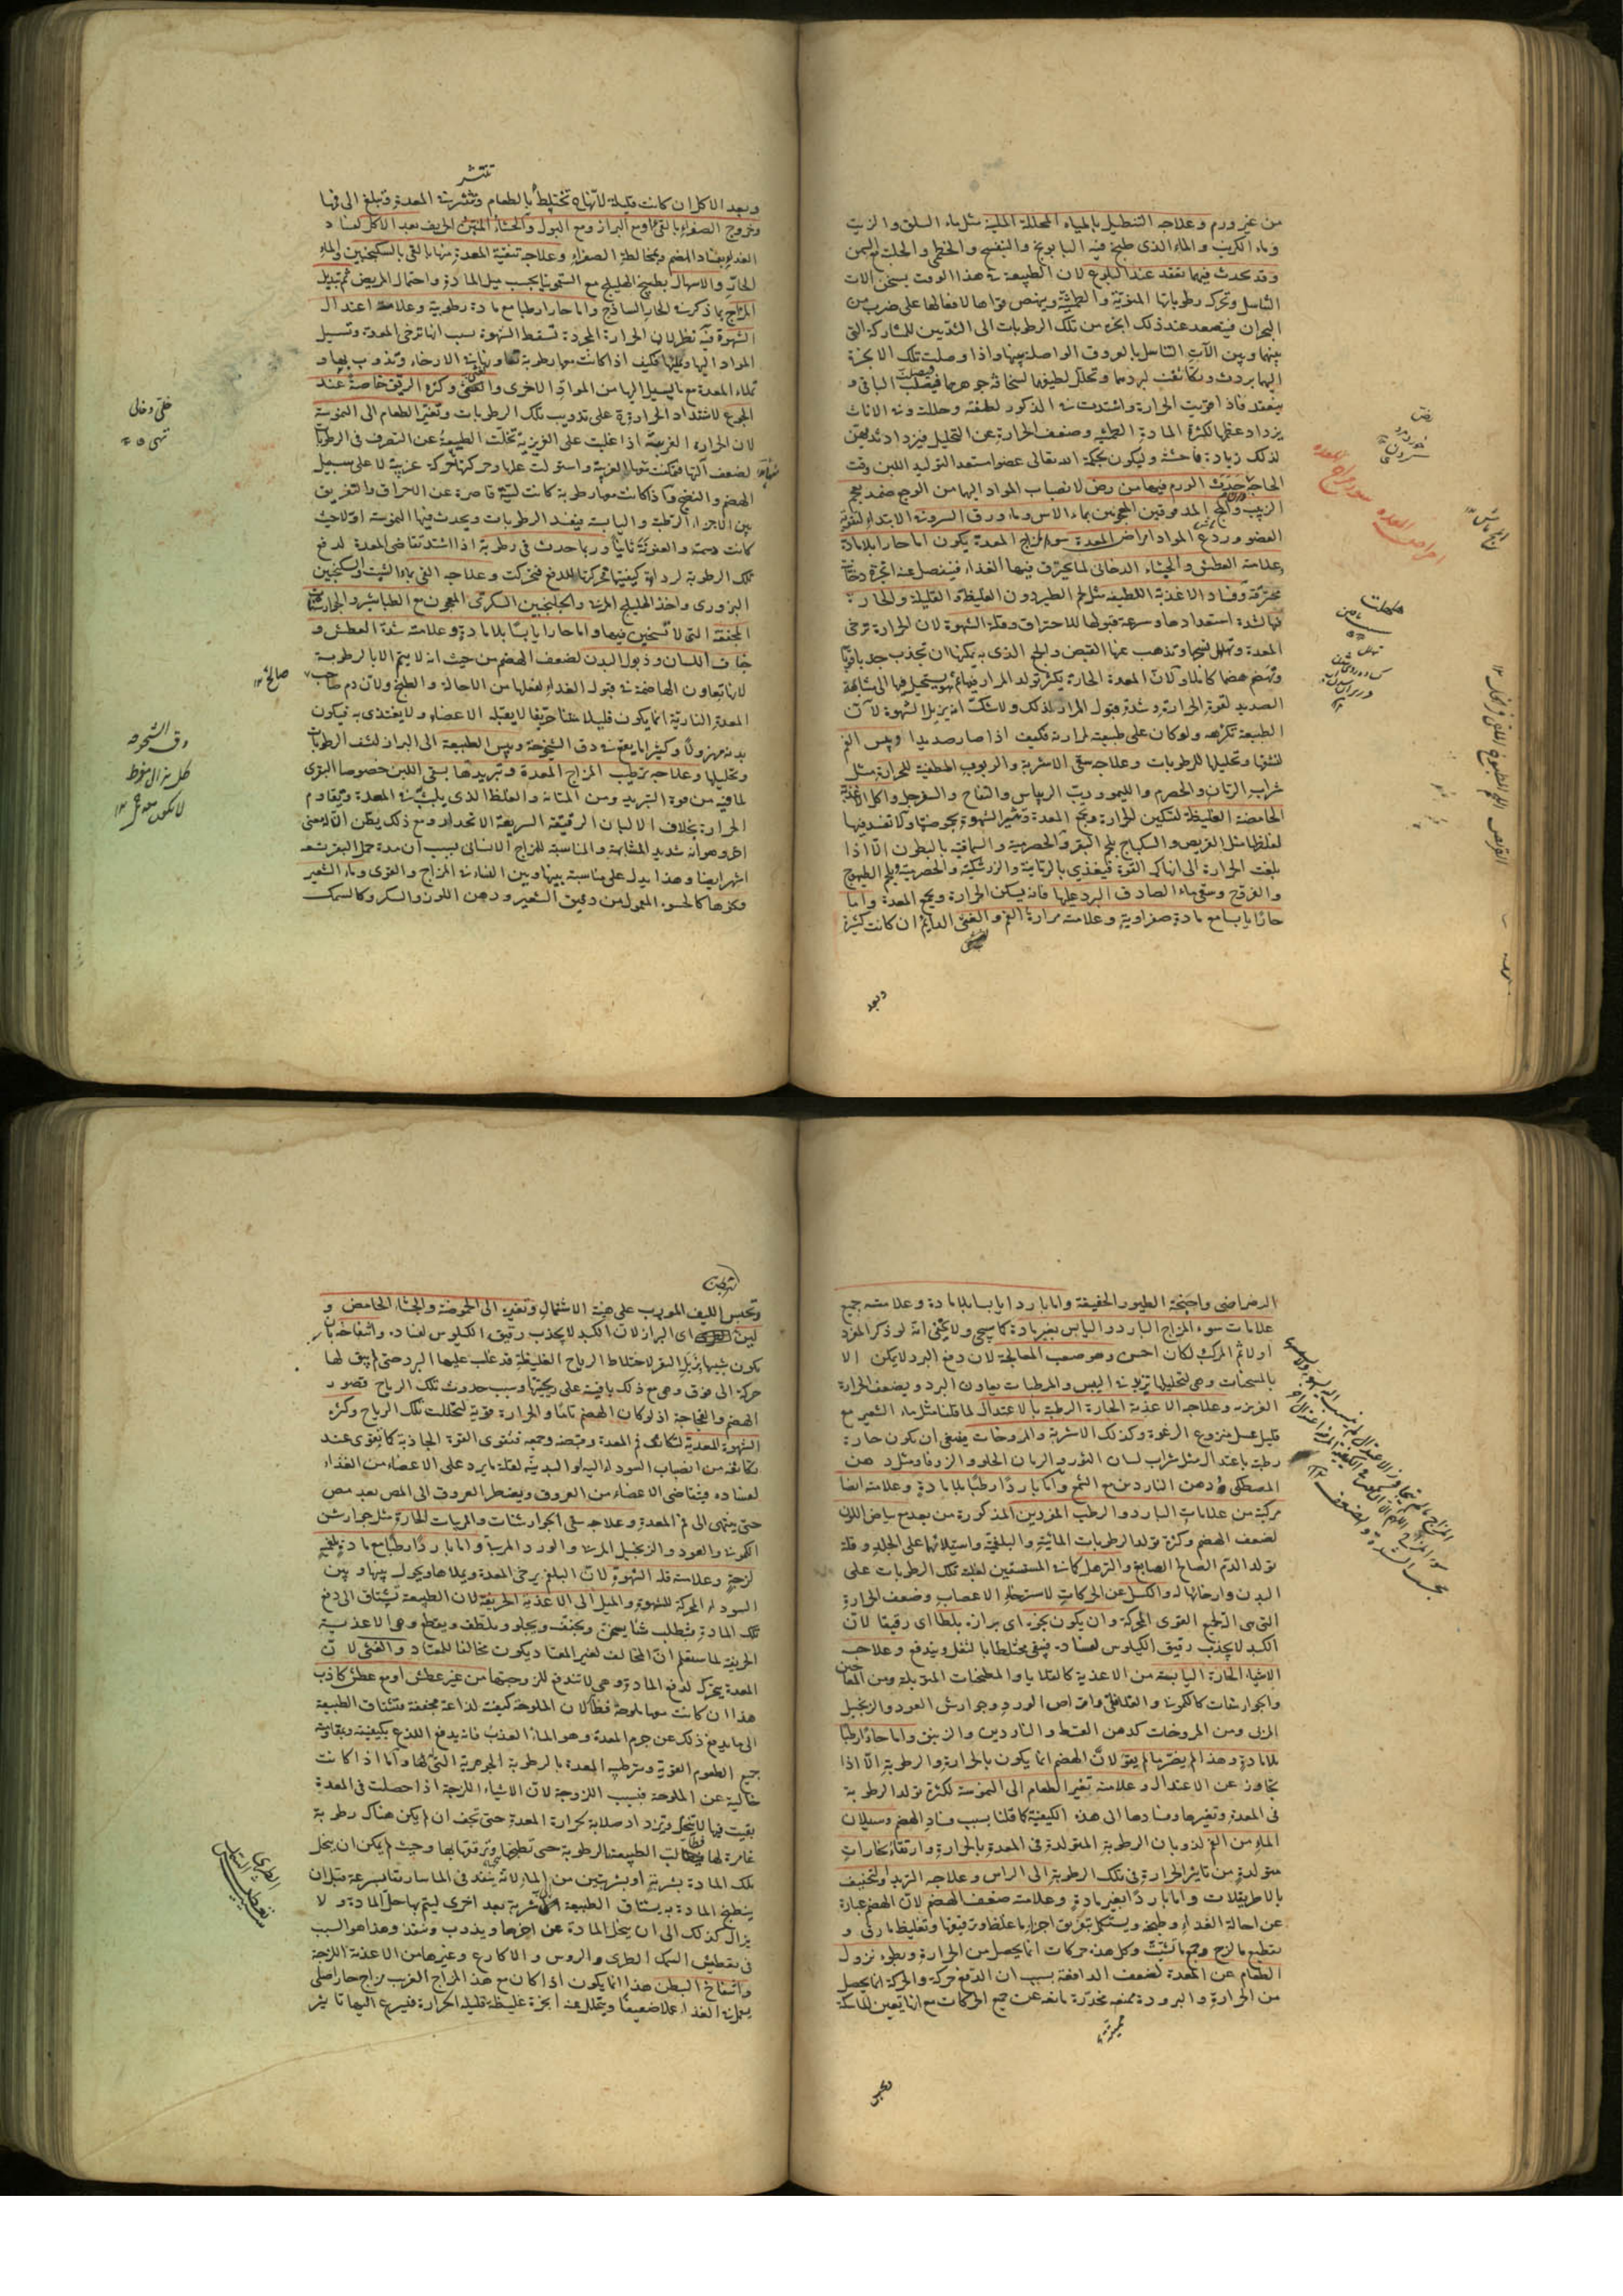 من غير ورم وعلاجه التنطيل بالمياه المحللة الملينة مثل ماء السلق والزيت
وماء الكرنب والماء الذي طبخ فيه البابونج والبنفسج والخطمي والحلبة مع السمن
وقد يحدث فيهما تعقد عند البلوغ لان الطبيعة في هذا الوقت يسخن الات
التناسل وتحرك رطوباتها المنوية والطمثية وينهض قواها لافعالها على ضرب من
البحران فيتصعد عند ذلك ابخرة من تلك الرطوبات الى الثديين للمشاركة التي
بينهما وبين الآت التناسل بالعروق الواصلة بينها واذا وصلت تلك الابخرة
اليهما بردت وتكاثفت لبردهما وتحلل لطيفها لسخافة جوهرهما فيصلب الباقي و
ينعقد فاذا قويت الحرارة واشتدت في الذكور لطفته وحللته وفي الاناث
يزداد عظمها لكثرة المادة الطمثية وضعف الحرارة عن التحليل فيزداد ثديهن
لذلك زيادة فاحشة وليكون بحكمة الله تعالى عضو استعد لتوليد اللبن وقت
الحاجة حدث الورم فيهما من رض لانصباب المواد اليهما من الوجع ضمد بعجم
الزبيب والملح المدقوقين المعجونين بماء الاس وماء ورق السرو في الابتداء لتقوية
العضو وردع المواد امراض المعدة سوء مزاج المعدة يكون اما حارا بلا مادة
وعلامته العطش والجشاء الدخاني لما يحترق فيها الغذاء فينفصل عنه ابخرة دخانية
محترقة وفساد الاغذية اللطيفة مثل لحم الطير دون الغليظة والقليلة والحارة
فيها لشدة استعدادها وسرعة قبولها للاحتراق وقلة الشهوة لان الحرارة ترخي
المعدة وتهلهل نسجها وتذهب عنها القبض والجمع الذي به يمكنها ان تجذب جذبا قويا
وتهضم هضما كاملا ولان المعدة الحارة يكثر تولد المرار فيها ثم هو يستحيل فيها الى مشابهة
الصديد لقوة الحرارة وشدة قبول المرار لذلك ولا شك انه يزيل الشهوة لان
الطبيعة تكرهه ولو كان على طبيعته لمرارته فكيف اذا صار صديدا ويبس الفم
لنشفها وتحليلها للرطوبات وعلاجه سقي الاشربة والربوب المطفية للحرارة مثل
شراب الرمان والحصرم والليمو وربت الريباس والتفاح والسفرجل واكل الاغذية
الحامضة الغليظة لتسكين الحرارة وجمع المعدة وتثير الشهوة بحموضتها ولا تفسد فيها
لغلظها مثل القريص والسكباج بلحم البقر والحصرمية والسماقية بالبطون الا اذا
بلغت الحرارة الى انهاك القوة فليغذى بالرمانية والزرشكية والحصرمية بلحم الطيهوج
والفروج وسقي ماء الصادق البرد عليها فانه يسكن الحرارة ويجمع المعدة واما
حارا يابسا مع مادة صفراوية وعلامته مرارة الفم والغثي الدائم ان كانت كثيرة
وبعد
امراض المعدة
سوء مزاج المعدة
تنتشر
وبعد الاكل ان كانت قليلة لانها تختلط بالطعام وتنتشر في المعدة وتبلغ الى فمها
وخروج الصفراء بالقئ او مع البراز ومع البول والجشاء المنتن الحريف بعد الاكل لفساد
الغذاء بفساد الهضم وبمخالطة الصفراء وعلاجه تنقية المعدة منها بالقئ بالسكنجبين والماء
الحار والاسهال بطبيخ الهليلج مع السقمونيا بحسب ميل المادة واحتمال المريض ثم تبديل
المزاج بما ذكر في الحار الساذج واما حارا رطبا مع مادة رطوبية وعلامته اعتدال
الشهوة فيه نظر لان الحرارة المجردة تسقط الشهوة بسبب انها ترخي المعدة وتسيل
المواد اليها وتملئها فكيف اذا كانت معها رطوبة تعاونها في الارخاء وتذوب بها و
تملاء المعدة مع ما يسيل اليها من المواد الاخرى والغثي وكثرة الريق خاصة عند
الجوع لاشتداد الحرارة على تذويب تلك الرطوبات وتغير الطعام الى العفونة
لان الحرارة الغريبة اذا غلبت على الغريزية تخلت الطبيعة عن التصرف في الرطوبات
لضعف آلتها فتمكنت نوبة الغريبة واستولت عليها وحركتها حركة غريبة لا على سبيل
الهضم والنضج واذا كانت معها رطوبة كانت لينة قاصرة عن الاحراق والتفريق
بين الاجزاء الرطبة واليابسة فيفسد الرطوبات ويحدث فيها العفونة
تلك الرطوبة لرداءة كيفيتها وعلاجه القئ بماء الشبت والسكنجبين
البزوري واخذ الهليلج المربى والجلنجبين السكري المعجون مع الطباشير والجوارشنات
المجففة التي لا تسخين فيها واما حارا يابسا بلا مادة وعلامته شدة العطش و
جفاف اللسان وذبول البدن لضعف الهضم من حيث انه لا يتم الا بالرطوبة
لانها تعاون الهاضمة في قبول الغذاء لفعلها من الاحالة والطبخ ولان دم صاحب
المعدة النارية انما يكون قليلا منتنا حريفا لا يقبله الاعضاء ولا يغتذى به فيكون
بدنه مهزولا وكثيرا ما يقع في دق الشيخوخة ويبس الطبيعة الى البراز لنشف الرطوبات
وتحليلها وعلاجه ترطيب المزاج المعدة وتبريدها بسقي اللبن خصوصا البقري
لما فيه من قوة التبريد ومن المتانة والغلظ الذي يلبث في المعدة ويقاوم
الحرارة بخلاف الالبان الرقيقة السريعة الانحدار ومع ذلك
شديد المشابهة والمناسبة للمزاج الانساني بسبب ان مدة حمل البقر تسعة
اشهر ايضا وهذا يدل على مناسبة بينها وبين الانسان في المزاج والقوى وماء الشعير
ونحوها كالحسو المعمول من دقيق الشعير ودهن اللوز والسكر وكالسمك
دق الشيخوخة
صالح
الرضراضي واجنحة الطيور الخفيفة واما باردا يابسا بلا مادة وعلامته جميع
علامات سوء المزاج البارد واليابس بغير مادة كما سيجئ ولا يخفى انه لو ذكر المفرد
اولا ثم المركب لكان احسن وهو صعب المعالجة لان دفع البرد لا يمكن الا
بالمسخنات وهي لتحليلها تزيد في اليبس والمرطبات يعاون البرد ويضعف الحرارة
الغريزية وعلاجه الاغذية الحارة الرطبة بالاعتدال لما قلنا مثل ماء الشعير مع
قليل عسل منزوع الرغوة وكذلك الاشربة والمروخات ينبغي ان يكون حارة
رطبة باعتدال مثل شراب لسان الثور والرمان الحلو والزوفا ومثل دهن
المصطكى ودهن الناردين مع الشمع واما باردا رطبا بلا مادة وعلامته ايضا
مركبة من علامات البارد والرطب المفردين المذكورة من بعد مع بياض اللون
لضعف الهضم وكثرة تولد الرطوبات المائية والبلغمية واستيلائها على الجلد وقلة
تولد الدم الصالح الصابغ والترهل كما في المستسقين لغلبة تلك الرطوبات على
البدن وارخائها له والكسل عن الحركات لاسترخاء الاعصاب وضعف الحرارة
التي هي آلة لجميع القوى المحركة وان يكون نجوه اى برازه بلطا اى رقيقا لان
الكبد لا يجذب رقيق الكيلوس لفساده فيبقى مختلطا بالثفل ويندفع وعلاجه
الاشياء الحارة اليابسة من الاغذية كالقلايا والمطجنات المتوبلة ومن المعاجين
والجوارشات كالكموني والفلافلي واقراص الورد وجوارش العود والزنجبيل
المربى ومن المروخات كدهن القسط والناردين والزنبق واما حارا رطبا
بلا مادة وهذا لم يضر ما لم يقو لان الهضم انما يكون بالحرارة والرطوبة الا اذا
تجاوز عن الاعتدال وعلامته تغير الطعام الى العفونة لكثرة تولد الرطوبة
في المعدة وتغيرها وفسادها الى هذه الكيفية كما قلنا بسبب فساد الهضم وسيلان
الماء من الفم لذوبان الرطوبة المتولدة في المعدة بالحرارة وارتقاء بخارات
متولدة من تاثير الحرارة في تلك الرطوبة الى الراس وعلاجه التبريد والتجفيف
بالاطريفلات واما باردا بغير مادة وعلامته ضعف الهضم لان الهضم عبارة
عن احالة الغذاء وطبخه ويستكمل بتفريق اجزاء ما غلظ وترقيقها وتغليظ ما رق و
تقطيع ما لزج وجمع ما تشتت وكل هذه حركات انما يحصل من الحرارة وبطوء نزول
الطعام عن المعدة لضعف الدافعة بسبب ان الدفع حركة والحركة انما يحصل
من الحرارة والبرودة مميتة مخدرة مانعة عن جميع الحركات مع انها تعين الماسكة
وتحبس
وتحبس الليف المورب على هيئة الاشتمال وتغيره الى الحموضة والجشاء الحامض و
لين اى البراز لان الكبد لا يجذب رقيق الكيلوس لفساده وانتفاخه بان
يكون شبيها بزبل البقر لاختلاط الرياح الغليظة قد غلب عليها البرد حتى لم يبق لها
حركة الى فوق وهي مع ذلك باقية على ريحيتها وسبب حدوث تلك الرياح قصور
الهضم والفجاجة اذ لو كان الهضم تاما والحرارة قوية لتحللت تلك الرياح وكثرة
الشهوة للمعدية لتكاثف فم المعدة وقبضه وجمعه فتقوى القوة الجاذبة كما تقوى عند
تكاثفه من انصباب السوداء اليه او البدنية لقلة ما يرد على الاعضاء من الغذاء
لفساده فيتقاضى الاعضاء من العروق ويضطر العروق الى المص بعد مص
حتى ينتهى الى فم المعدة وعلاجه سقي الجوارشنات والمربيات الحارة مثل جوارشن
الكموني والعود والزنجبيل المربى والورد المربى واما باردا رطبا مع مادة بلغمية
لزجة وعلامته قلة الشهوة لان البلغم يرخي المعدة ويملاها ويحول بينها وبين
السوداء المحركة للشهوة والميل الى الاغذية الحريفة لان الطبيعة تشتاق الى دفع
تلك المادة فتطلب شيئا يسخن ويجفف ويجلو ويلطف ويقطع وهي الاغذية
الحريفة لما ستعلم ان المخالف لغير المعتاد يكون مخالفا للمعتاد والغثي لان
المعدة يتحرك لدفع المادة وهي لا تندفع للزوجتها من غير عطش او مع عطش كاذب
هذا ان كانت معها ملوحة فظاهر لان الملوحة كيفية لذاعة مجففة فتشتاق الطبيعة
الى ما يدفع ذلك عن جرم المعدة وهو الماء العذب فانه يدفع اللذع بكيفيته ومقاومة
جميع الطعوم القوية وترطيب المعدة بالرطوبة الجوهرية التي لها واما اذا كانت
خالية عن الملوحة فبسبب اللزوجة لان الاشياء اللزجة اذا حصلت في المعدة
بقيت فيها لا يتحلل وتزداد صلابة بحرارة المعدة حتى تجف ان لم يكن هناك رطوبة
غامرة لها فطالب الطبيعة الرطوبة حتى تطبخها وترققها بها وحيث لم يكن ان ينحل
تلك المادة بشربة او بشربتين من الماء لانه ينفذ في الماساريقا بسرعة قبل ان
ينطبخ المادة به يشتاق الطبيعة الى شربة بعد اخرى ليتم بها حل المادة ولا
يزال كذلك الى ان ينحل المادة عن اخرها ويذوب وينفذ وهذا هو السبب
في تعطيش السمك الطري والروس والاكارع وغيرها من الاغذية اللزجة
وانتفاخ البطن هذا انما يكون اذا كان مع هذا المزاج الغريب مزاج حار اصلي
يعمل في الغذاء عملا ضعيفا ويتحلل عنه ابخرة غليظة قليلة الحرارة فيسرع اليها تاثير